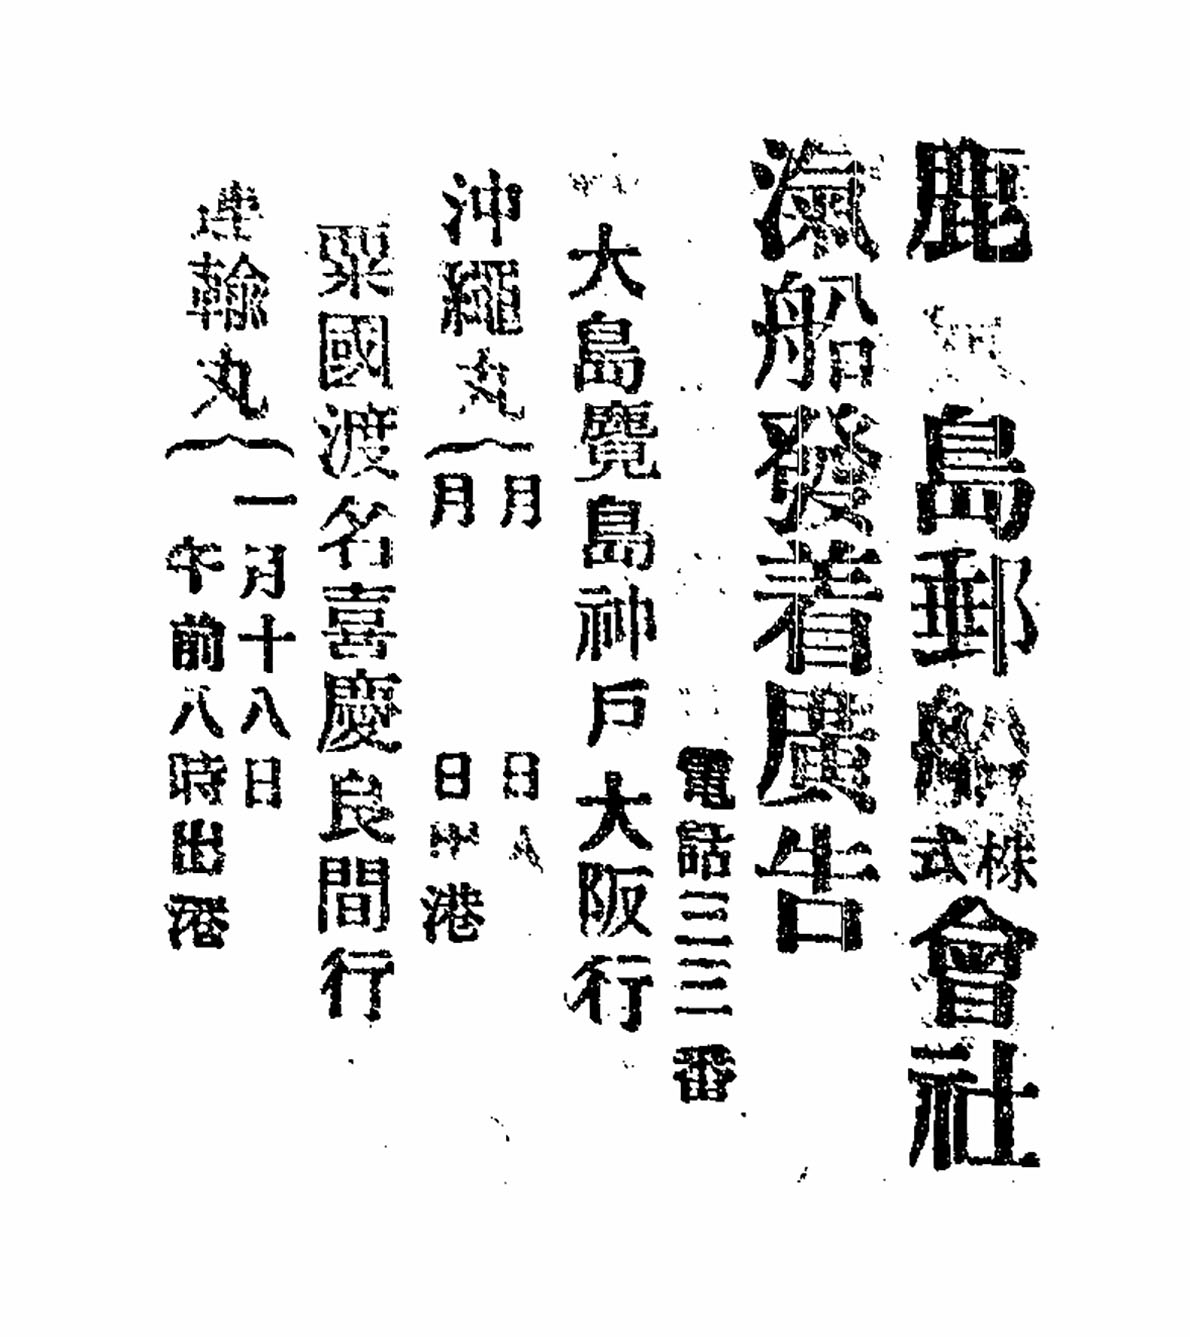 鹿島郵船株式會社
滊船發着廣告
電話三三番
大島覽島神戸大阪行
沖繩丸
月 日
月 日 港
粟國渡名喜慶良間行
運輸丸
一月十八日
午前八時出港